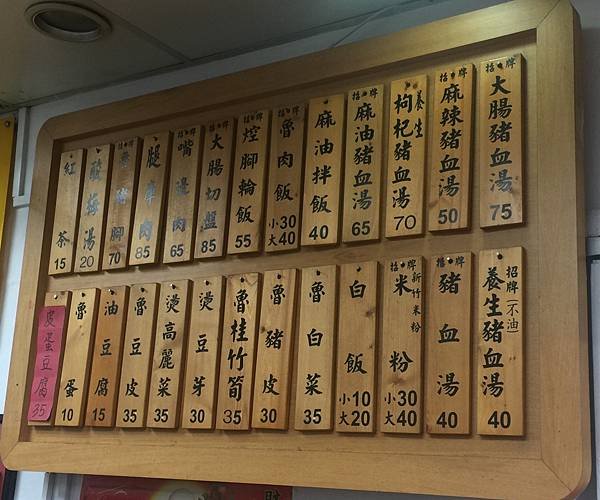 招牌
大腸豬血湯
75
招牌
麻辣豬血湯
50
養生
枸杞豬血湯
70
招牌
麻油豬血湯
65
麻油拌飯
40
招牌
魯肉飯
小30
大40
招牌
控腳輪飯
55
大腸切盤
85
招牌
嘴邊肉
65
腿庫肉
85
豬腳
70
酸梅湯
20
紅茶
15
招牌(不油)
養生豬血湯
40
招牌
豬血湯
40
招牌
新竹米粉
米粉
小30
大40
白飯
小10
大20
魯白菜
35
魯豬皮
30
魯桂竹筍
35
燙豆芽
30
燙高麗菜
35
魯豆皮
35
油豆腐
15
魯蛋
10
皮蛋豆腐
35